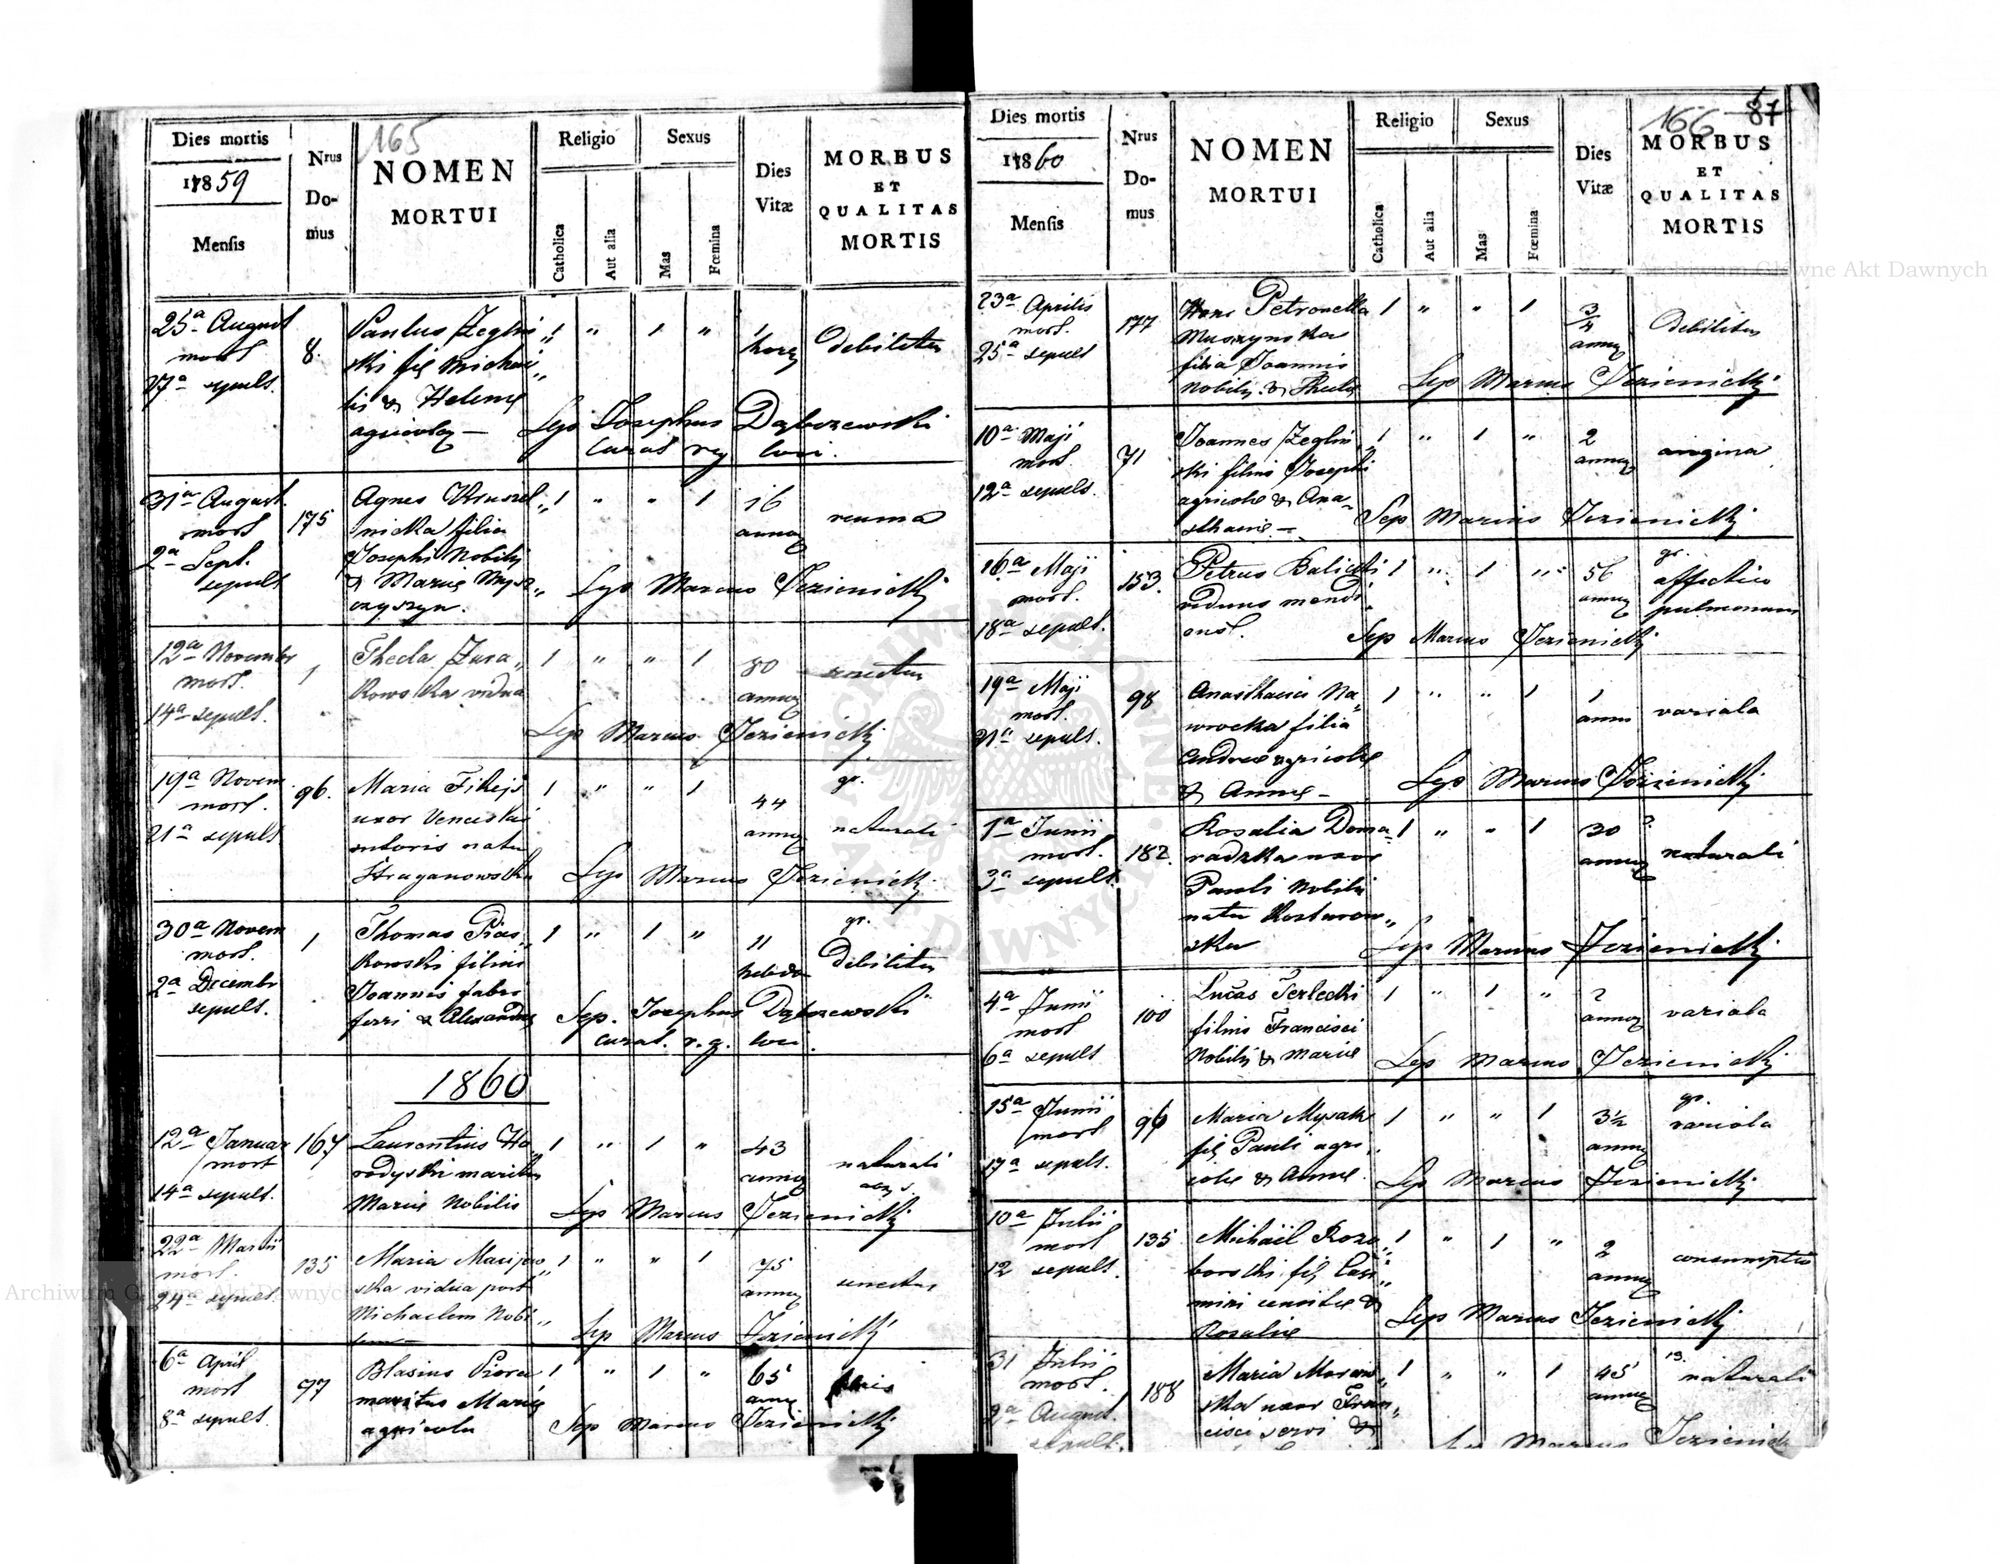 165
Dies mortis
1859
Mensis
Nrus
Do-
mus
NOMEN
MORTUI
Religio
Catholica
Aut alia
Sexus
Mas
Fœmina
Dies
Vitæ
MORBUS
ET
QUALITAS
MORTIS
25a August
mort.
27a sepult.
8.
Paulus Zegliń
ski fil Michae
lis & Helenæ
agricolar
1 " 1 "
1 hora
debilitas
Sep Josephus Dąbczewski
Curat rg loci.
31a August.
mort
2a Sept.
sepult
175
Agnes Kruszel
nicka filia
Josephi Nobilis
& Mariæ Mysz
czyszyn.
1 " " 1
16
annor
reuma
Sep Marcus Jezienicki
12a Novembr
mort.
14a sepult.
1
Thecla Żura
kowska vidua
1 " " 1
80
annor
senectus
Sep Marcus Jezienicki
19a Novem
mort.
21a sepult
96.
Maria Fikejs
uxor Venceslai
sutoris nata
Hraganowska
1 " " 1
44
annor
gr.
naturali
Sep Marcus Jezienicki
30a Novem
mort.
2a Decembr
sepult.
1
Thomas Pias
kowski filius
Joannis fabri
ferri & Alexandræ
1 " 1 "
11
hebdo
gr.
debilitas
Sep. Josephus Dąbczewski
curat. r.g. loci.
1860
12a Januar
mort
14a sepult.
167
Laurentius Ho
rodyski maritus
Mariæ Nobilis
1 " 1 "
43
annor
naturali
Sep Marcus Jezienicki
22a Martii
mort.
24a sepult.
135
Maria Macijow
ska vidua post
Michaelem Nobi
lem
1 " " 1
75
annor
senectus
Sep Marcus Jezienicki
6a April
mort
8a sepult.
97
Blasius
maritus Mariæ
agricola
1 " 1 "
65
anno
Sep Marcus Jezienicki
166 87
Dies mortis
1860
Mensis
Nrus
Do-
mus
NOMEN
MORTUI
Religio
Catholica
Aut alia
Sexus
Mas
Fœmina
Dies
Vitæ
MORBUS
ET
QUALITAS
MORTIS
23a Aprilis
mort.
25a sepult
177
Petronella
Muszynska
filia Joannis
Nobilis & Theclæ
1 " " 1
3/4
annor
debilitas
Sep Marcus Jezienicki
10a Maji
mort.
12a sepult.
71
Joannes Zegliń
ski filius Josephi
agricolæ & Ana
sthasiæ
1 " 1 "
2
annor
angina
Sep Marcus Jezienicki
16a Maji
mort.
18a sepult.
153.
Petrus Balicki
viduus mendi
1 " 1 "
56
annor
gr.
affectio
pulmonum
Sep Marcus Jezienicki
19a Maji
mort.
21a sepult.
98
Anasthasia Na
wrocka filia
Andreæ agricolæ
& Annæ
1 " " 1
1
anni
variola
Sep Marcus Jezienicki
1a Junii
mort.
3a sepult.
182.
Rosalia Doma
radzka uxor
Pauli Nobilis
nata Kostarow
ska
1 " " 1
30
annor
naturali
Sep Marcus Jezienicki
4a Junii
mort
6a sepult
100
Lucas Terlecki
filius Francisci
Nobilis & Mariæ
1 " 1 "
2
annor
variola
Sep Marcus Jezienicki
15a Junii
mort
17a sepult.
96
Maria Mysak
fil Pauli agri
colæ & Annæ
1 " " 1
3½
annor
gr.
variola
Sep Marcus Jezienicki
10a Julii
mort
12 sepult.
135
Michaël Rozo
borski fil Casi
miri & 
Rosaliæ
1 " 1 "
2
annor
consumptio
Sep Marcus Jezienicki
31 Julii
mort.
2a August.
sepult.
188
Maria Moraw
ska uxor Fran
cisci servi &
1 " " 1
45
annor
naturali
Sep Marcus Jezienicki
Archiwum Główne Akt Dawnych
Archiwum Główne Akt Dawnych
ARCHIWUM GŁÓWNE AKT DAWNYCH